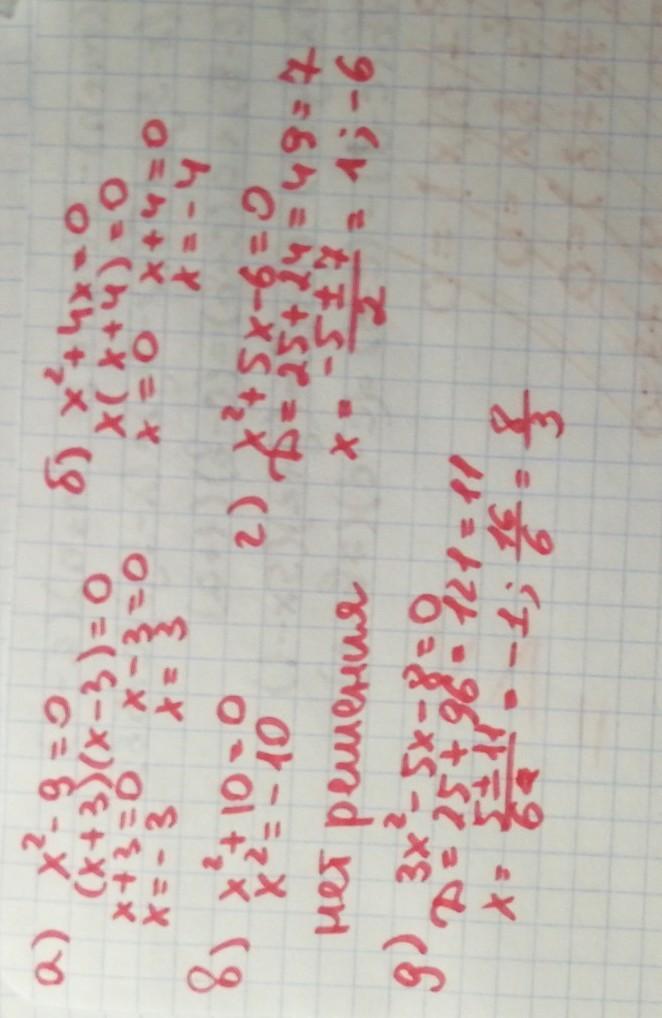 а) x² - 9 = 0
(x+3)(x-3)=0
x+3=0 x-3=0
x=-3 x=3
б) x² + 4x = 0
x(x+4)=0
x=0 x+4=0
x=-4
в) x² + 10 = 0
x² = -10
нет решения
г) x² + 5x - 6 = 0
D = 25 + 24 = 49 = 7
x = (-5 ± 7)/2 = 1; -6
д) 3x² - 5x - 8 = 0
D = 25 + 96 = 121 = 11
x = (5 ± 11)/6 = -1; 16/6 = 8/3